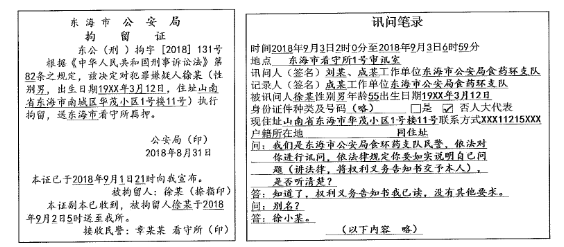 东海市公安局
拘留证
东公（刑）拘字［2018］131号
根据《中华人民共和国刑事诉讼法》第
82条之规定，兹决定对犯罪嫌疑人徐某（性
别男，出生日期19XX年3月12日，住址山南
省东海市南城区华茂小区1号楼11号）执行
拘留，送东海市看守所羁押。
公安局（印）
2018年8月31日
本证已于2018年9月1日21时向我宣布。
被拘留人：徐某（捺指印）
本证副本已收到，被拘留人徐某于2018
年9月2日5时送至我所。
接收民警：章某某 看守所（印）
讯问笔录
时间2018年9月3日2时0分至2018年9月3日6时59分
地点 东海市看守所1号审讯室
讯问人（签名）刘某、成某工作单位东海市公安局食药环支队
记录人（签名）成某工作单位东海市公安局食药环支队
被讯问人徐某性别男年龄55出生日期19XX年3月12日
身份证件种类及号码（略） □是 ☑否人大代表
现住址山南省东海市华茂小区1号楼11号联系方式XXX11215XXX
户籍所在地 同住址
问：我们是东海市公安局食环药支队民警，依法对
你进行讯问，依法律规定你要如实说明自己问
题（讲法律，将权利义务告知书交予本人），
是否听清楚？
答：知道了，权利义务告知书我已读，没有其他要求。
问：别名？
答：徐小某。
（以下内容 略）